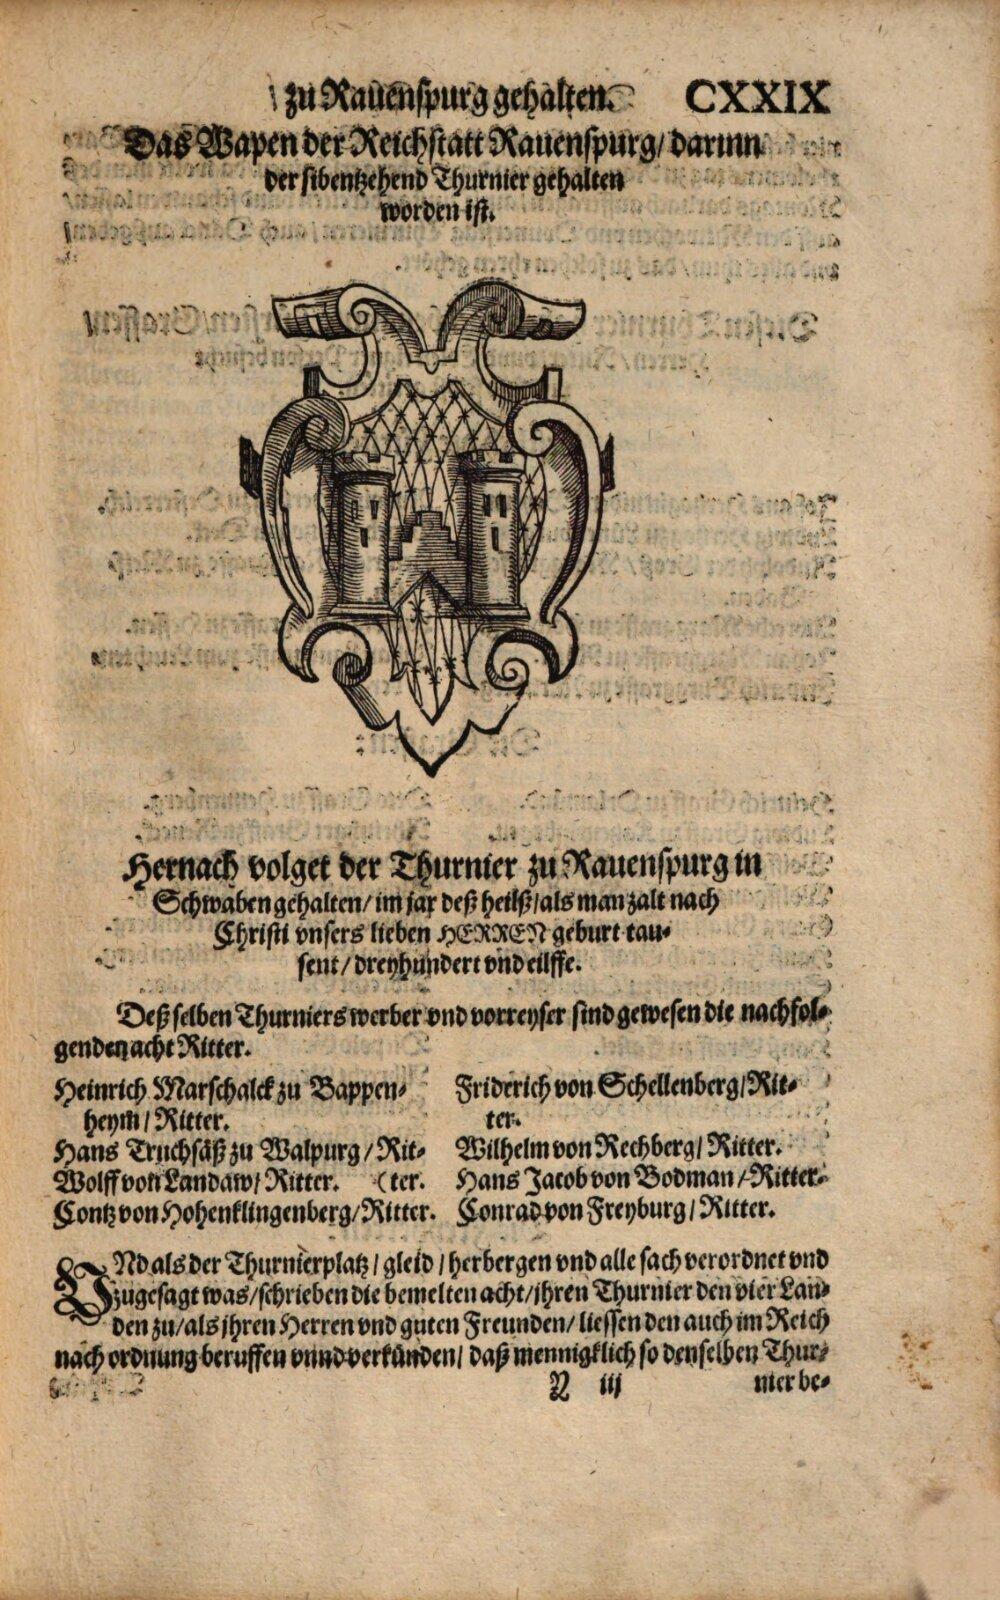 zu Rauenspurg gehalten. CXXIX
Das Wapen der Reichstatt Rauenspurg/ darinn
der sibentzehend Thurnier gehalten
worden ist.
Hernach volget der Thurnier zu Rauenspurg in
Schwaben gehalten/ im jar deß heilß/ als man zalt nach
Christi vnsers lieben HERREN geburt tau-
sent/ dreyhundert vnd eilffe.
Deß selben Thurniers werber vnd vorreyser sind gewesen die nachfol-
genden acht Ritter.
Heinrich Marschalck zu Bappen-
heym/ Ritter.
Hans Truchsäß zu Walpurg/ Rit-
Wolff von Landaw/ Ritter. (ter.
Contz von Hohenklingenberg/ Ritter.
Friderich von Schellenberg/ Rit-
ter.
Wilhelm von Rechberg/ Ritter.
Hans Jacob von Bodman/ Ritter.
Conrad von Freyburg/ Ritter.
VNd als der Thurnierplatz/ gleid/ herbergen vnd alle sach verordnet vnd
zugesagt was/ schrieben die bemelten acht/ jhren Thurnier den vier Lan-
den zu/ als jhren Herren vnd guten Freunden/ liessen den auch im Reich
nach ordnung beruffen vnnd verkünden/ daß mennigklich so denselben Thur-
N iij nier be-